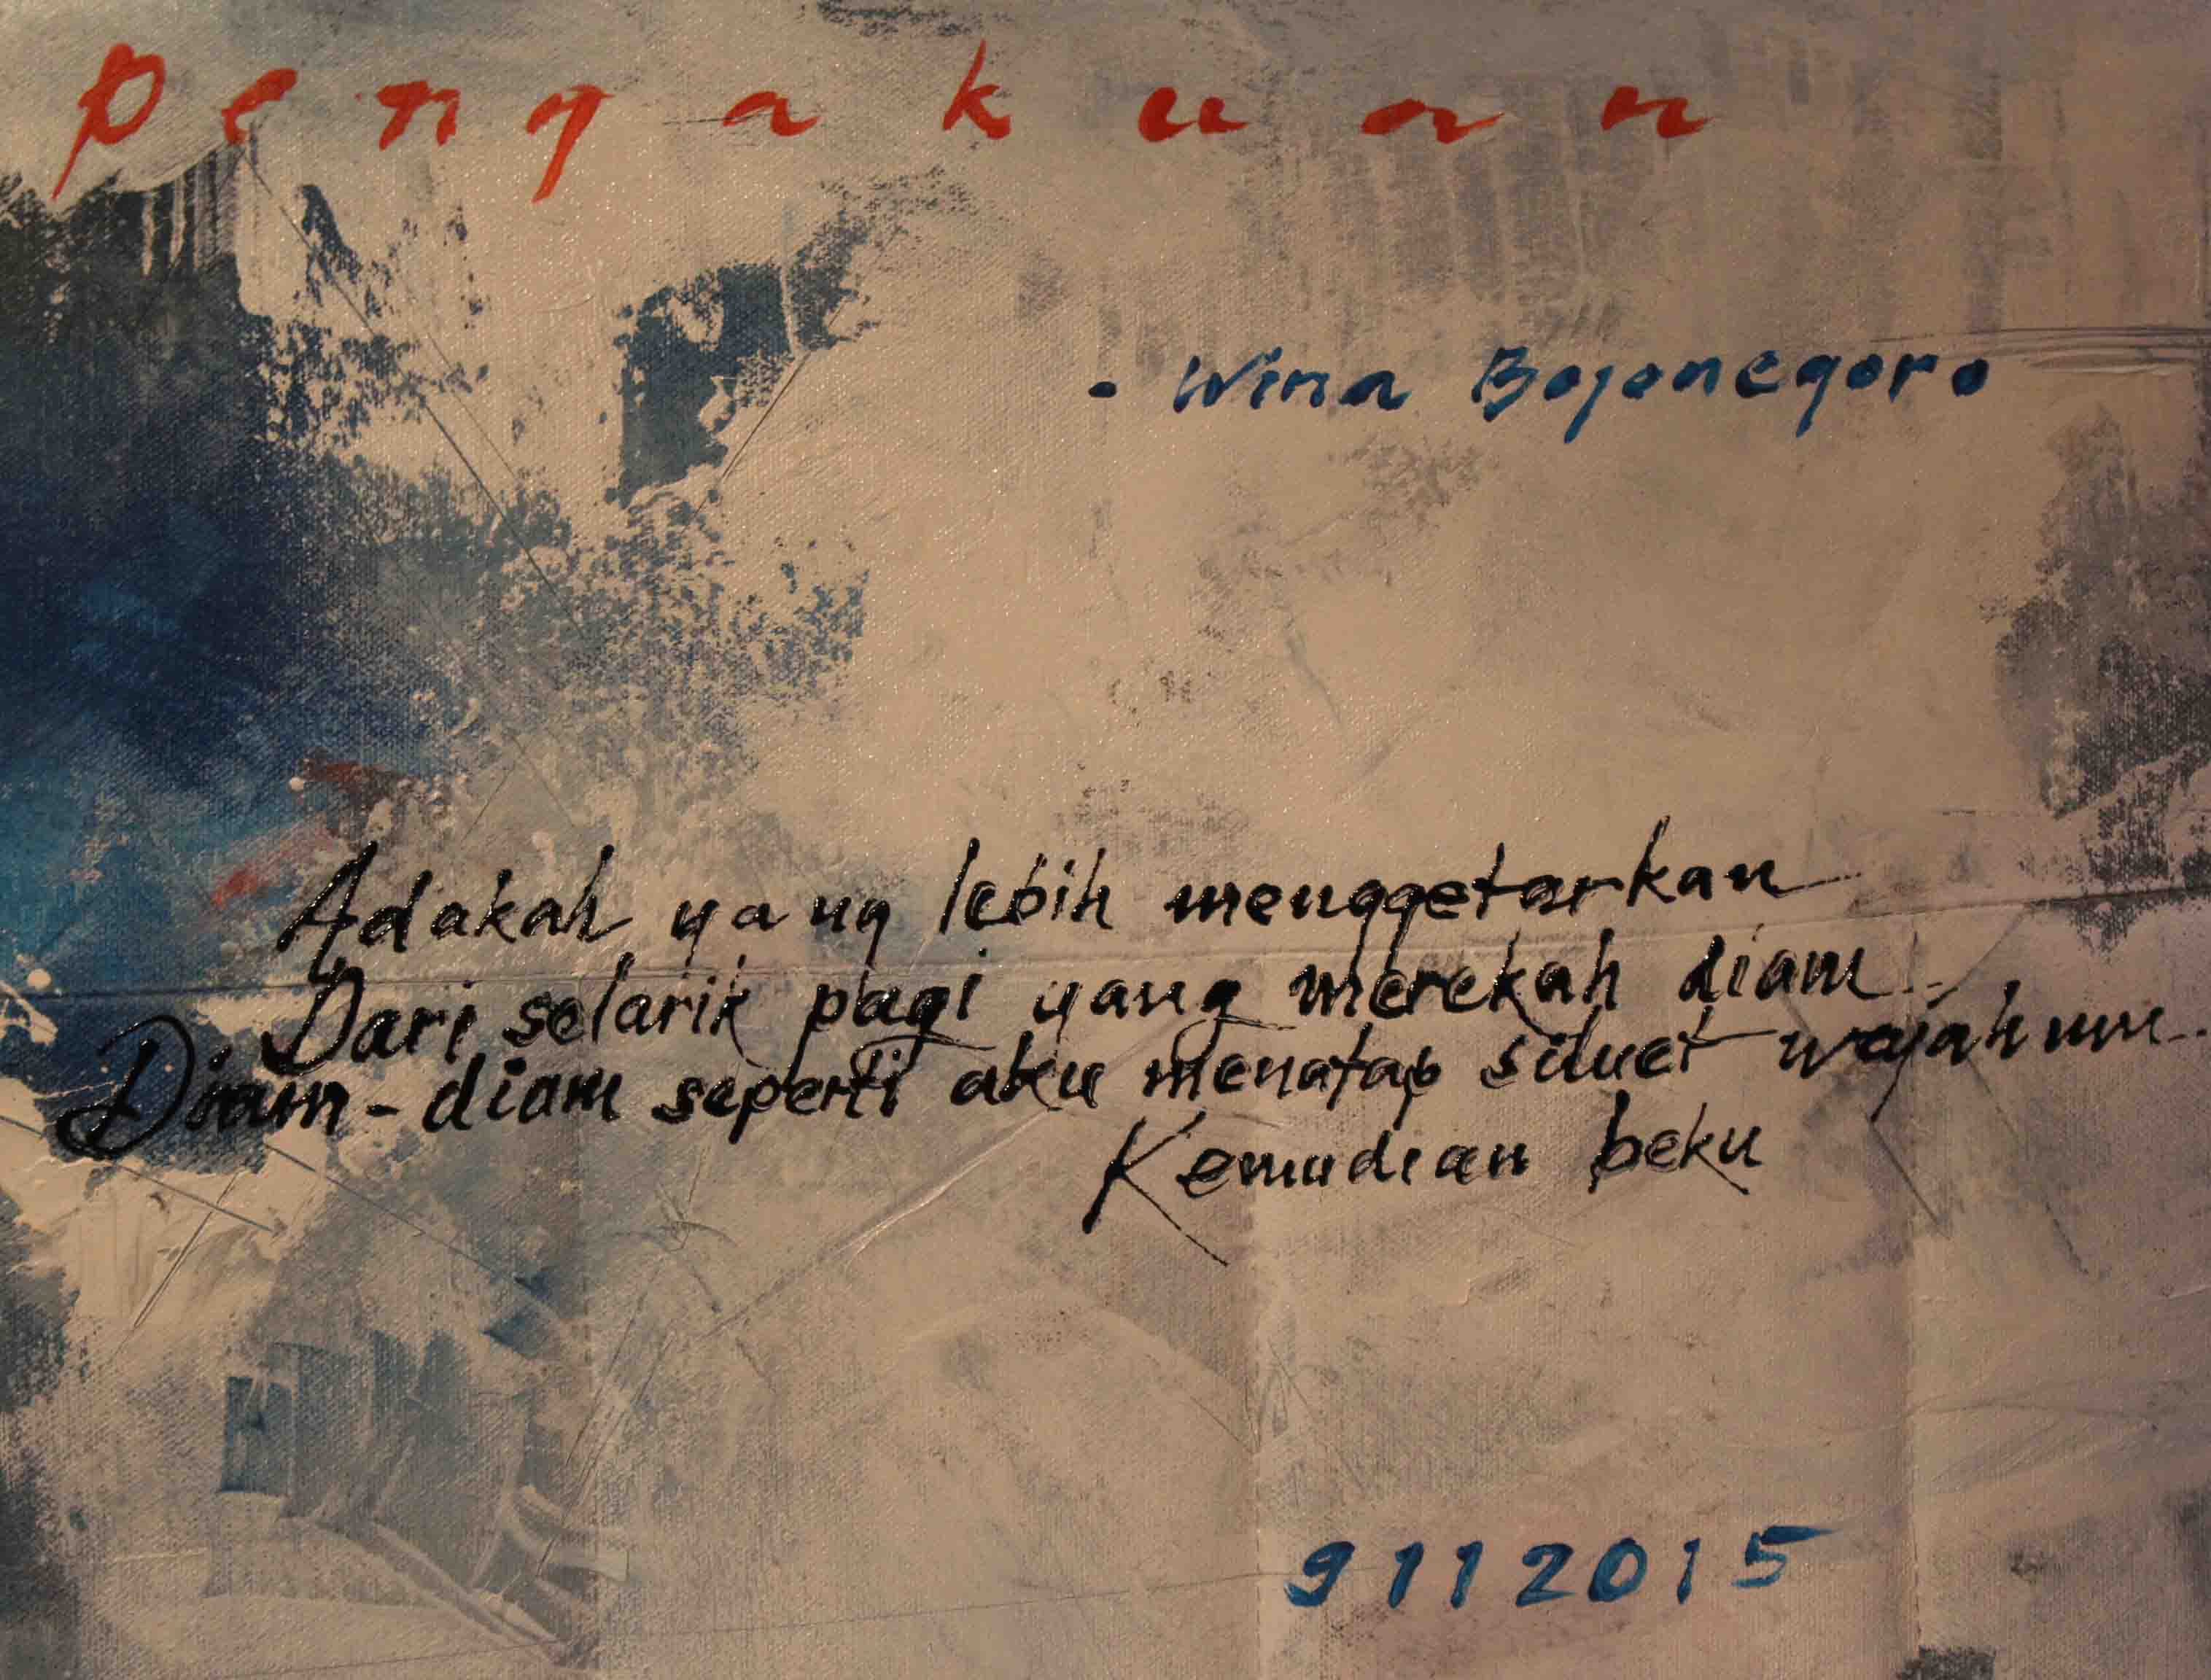 Pengakuan
- Wina Bojonegoro
Adakah yang lebih menggetarkan
Dari selarik pagi yang merekah diam
Diam-diam seperti aku menatap siluet wajahmu
Kemudian beku
9112015